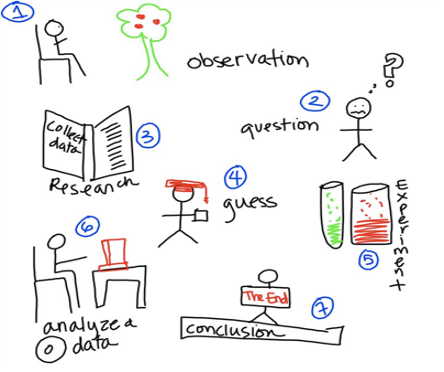 1
observation
?
2
question
Collect
data
3
Research
4
guess
Experiment
5
6
analyze a
data
The End
7
conclusion